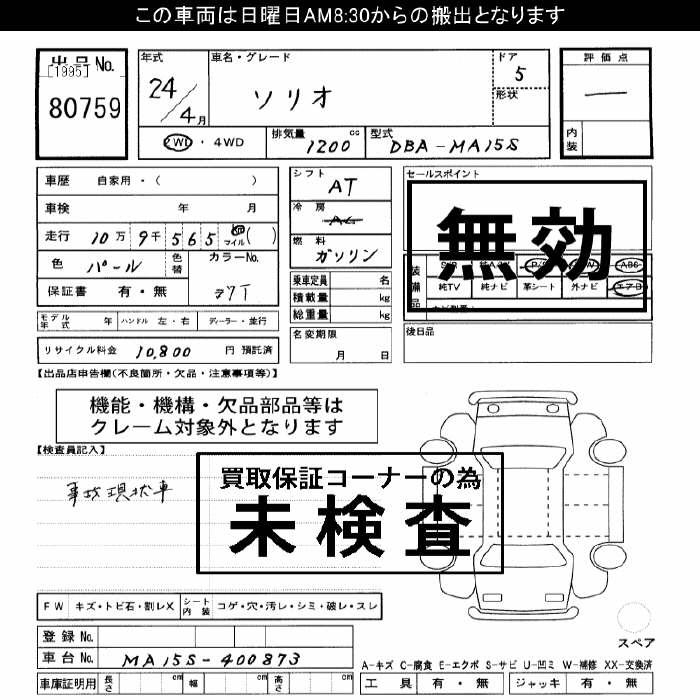 この車両は日曜日AM8:30からの搬出となります
出品No.
[1995]
80759
年式
24/4月
車名・グレード
ソリオ
ドア
5
形状
評価点
―
内装
2WD・4WD
排気量
1200 cc
型式
DBA-MA15S
車歴 自家用・( )
車検 年 月
走行 10万 9千 5 6 5 km マイル ( )
色 パール
色替
カラーNo.
Z7T
保証書 有・無
シフト
AT
冷房
AC
燃料
ガソリン
乗車定員 名
積載量 kg
総重量 kg
セールスポイント
無効
装備品
純TV 純ナビ 革シート 外ナビ エアB
モデル年式 年 ハンドル 左・右 ディーラー・並行
リサイクル料金 10,800 円 預託済
名変期限
月 日
後日品
【出品店申告欄(不良箇所・欠品・注意事項等)】
機能・機構・欠品部品等は
クレーム対象外となります
【検査員記入】
事故現状車
買取保証コーナーの為
未検査
FW キズ・トビ石・割レX シート内装 コゲ・穴・汚レ・シミ・破レ・スレ
登録No.
車台No. MA15S-400873
車庫証明用 長さ cm 幅 cm 高さ cm
スペア
A-キズ C-腐食 E-エクボ S-サビ U-凹ミ W-補修 XX-交換済
工具 有・無 ジャッキ 有・無